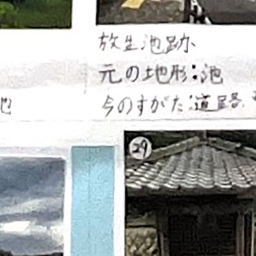 放生池跡
元の地形:池
今のすがた:道路
池
29